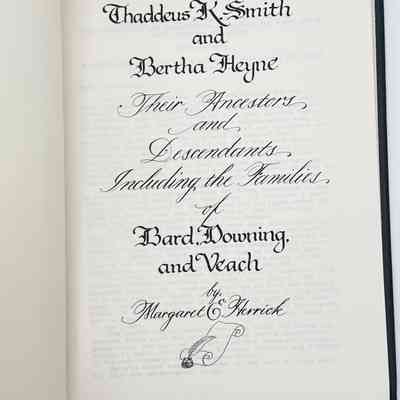 Thaddeus K. Smith
and
Bertha Heyne
Their Ancestors
and
Descendants
Including the Families
of
Bard, Downing,
and Veach
by
Margaret E. Herrick